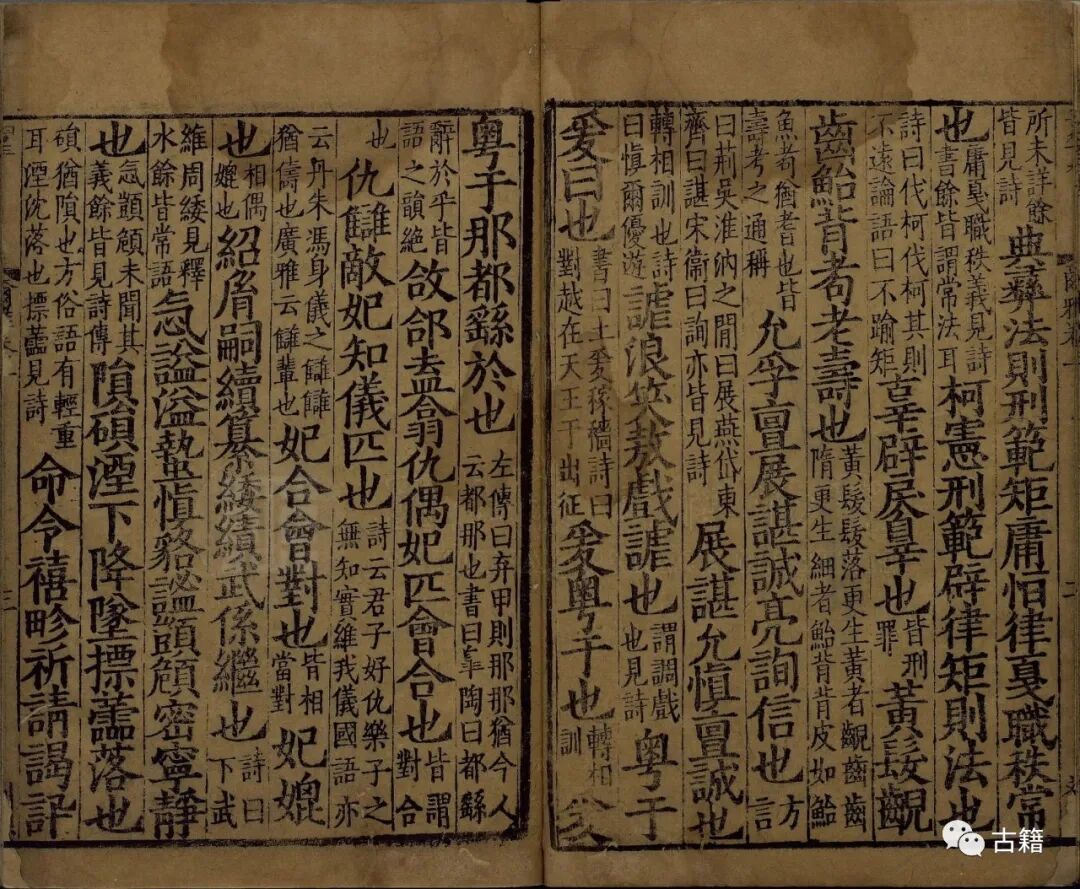 爾雅卷
二
所未詳餘皆見詩典彝法則刑範矩庸恒律戛職秩常
也庸戛職秩義見詩書餘皆謂常法耳柯憲刑範辟律矩則法也
詩曰伐柯伐柯其則不遠論語曰不踰矩辜辟戾辠也皆刑罪黃髮齯
齒鮐背耇老壽也黃髮髮落更生黃者齯齒齒隋更生細者鮐背背皮如鮐
魚耇猶耆也皆壽考之通稱允孚亶展諶誠亮詢信也方言
曰荊吳淮汭之間曰展燕岱東齊曰諶宋衞曰詢亦皆見詩展諶允慎亶誠也
轉相訓也詩曰慎爾優遊謔浪笑敖戲謔也謂調戲也見詩粵于
爰曰也書曰土爰稼穡詩曰對越在天王于出征爰粵于也轉相訓爰
粵于那都繇於也左傳曰弃甲則那那猶今人云都那也書曰皐陶曰都繇
辭於乎皆語之韻絕敆郃盍翕仇偶妃匹會合也皆謂對合
也仇讎敵妃知儀匹也詩云君子好仇樂子之無知實維我儀國語亦
云丹朱馮身儀之讎讎猶儔也廣雅云讎輩也妃合會對也皆相當對妃媲
也相偶媲也紹胤嗣續纂緌績武係繼也詩曰下武
維周緌見釋水餘皆常語忥謐溢蟄慎貉謚顗頠密寧靜
也忥顗頠未聞其義餘皆見詩傳隕磒湮下降墜摽蘦落也
磒猶隕也方俗語有輕重耳湮沈落也摽蘦見詩命令禧畛祈請謁訊
三
古籍